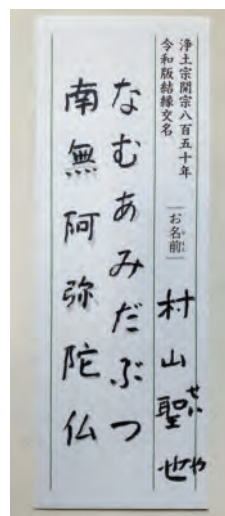 浄土宗開宗八百五十年
令和版結縁交名
お名前 村山聖也
がせいや
なむあみだぶつ
南無阿弥陀仏